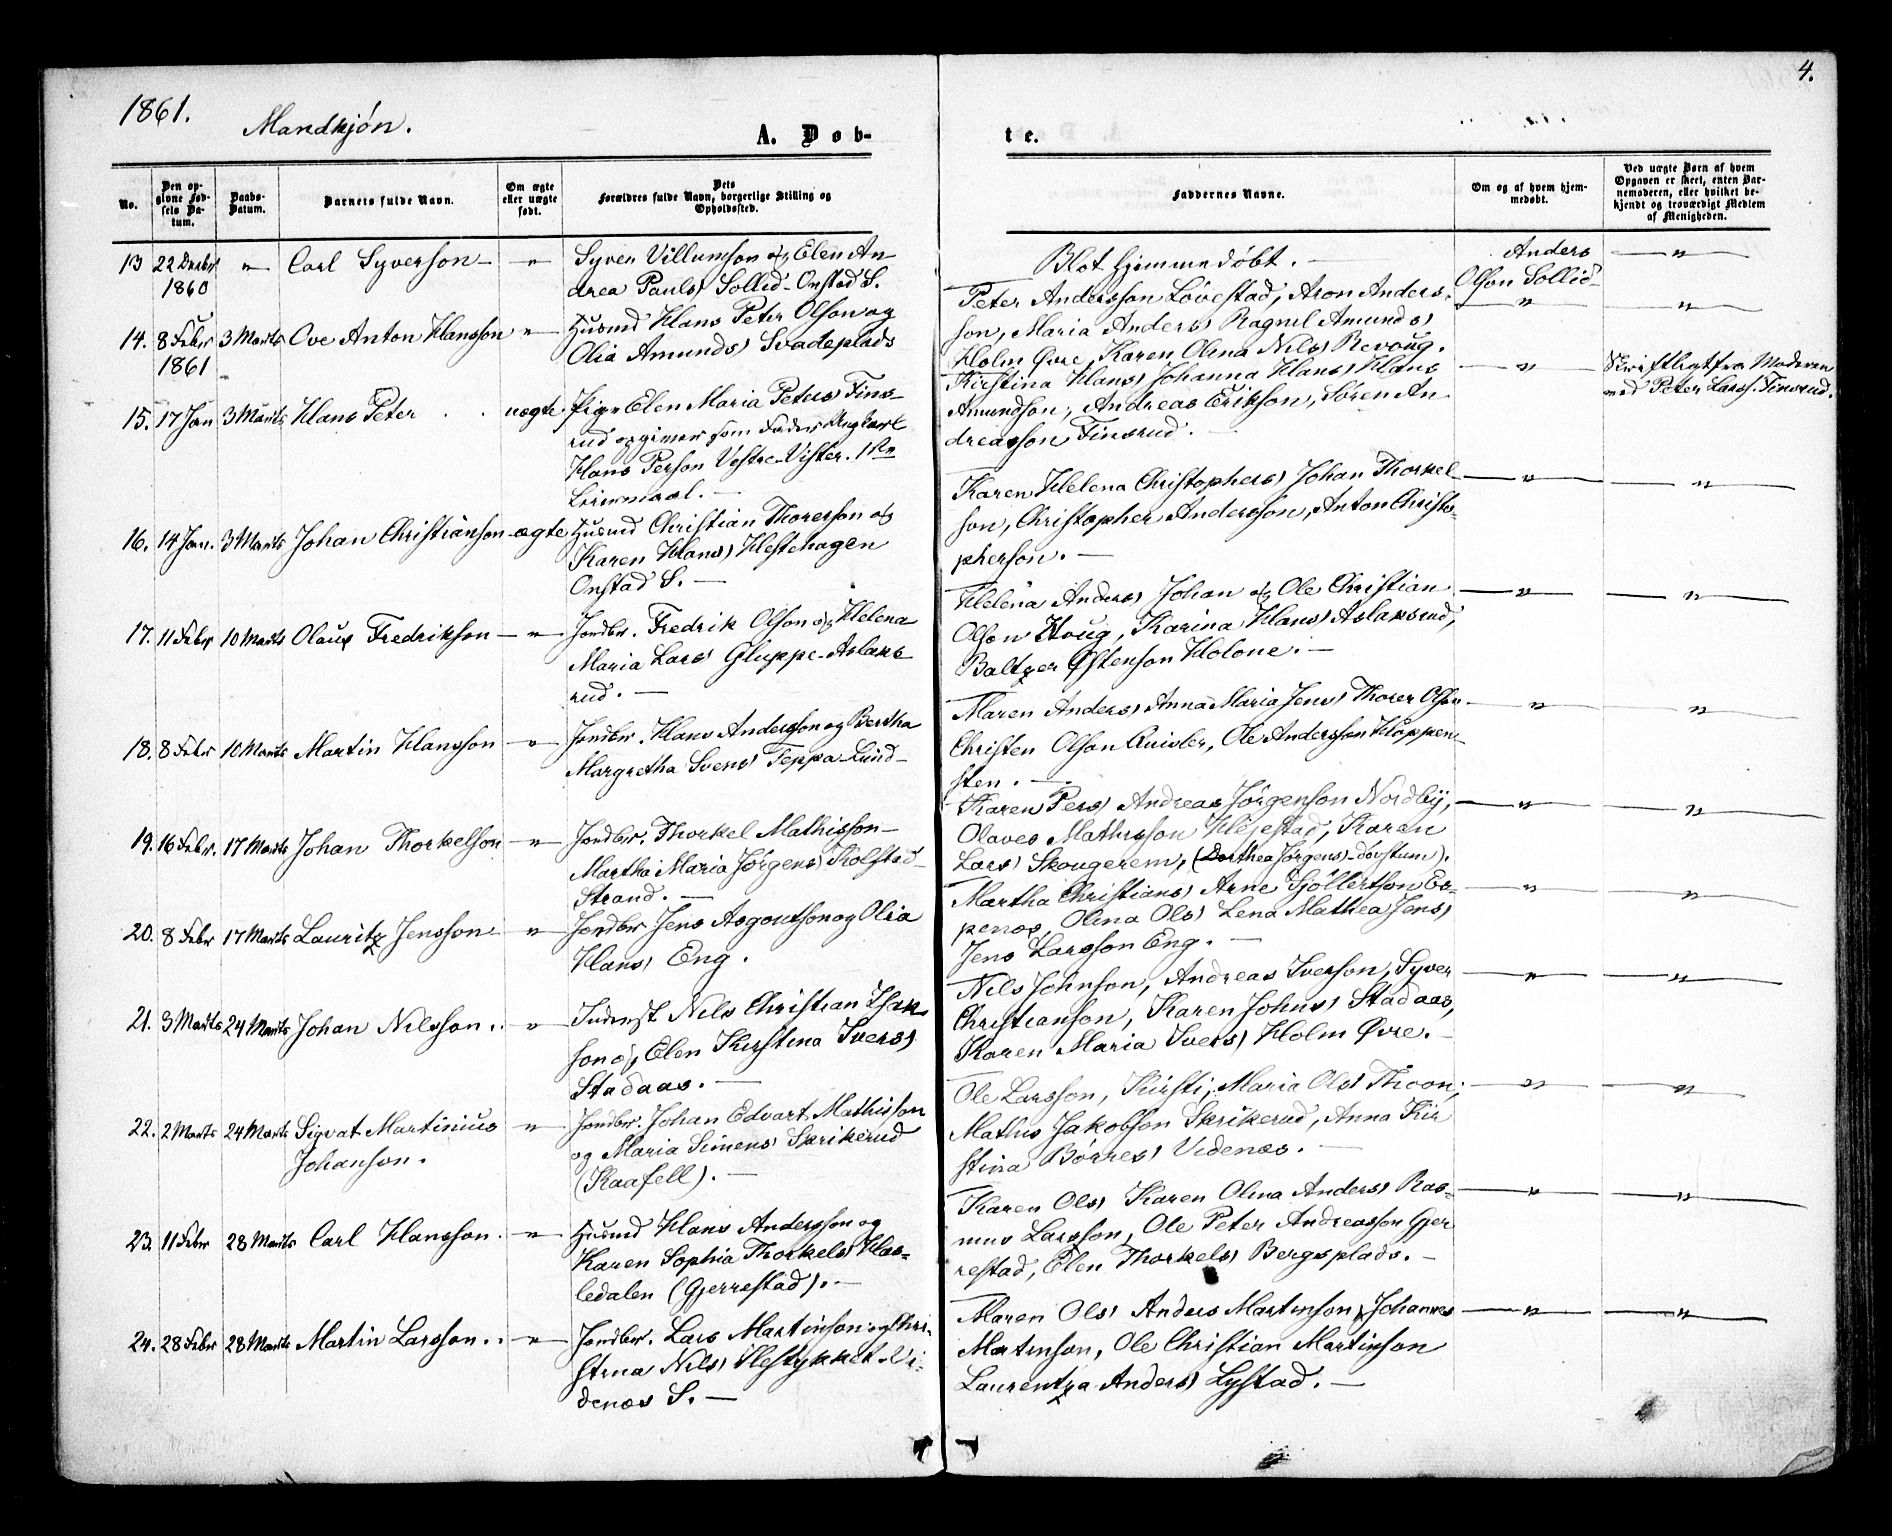 1861.
Mandkjön.
A. Døb-
te.
4.
No.
Den opgivne Fødsels Datum.
Daabs-Datum.
Barnets fulde Navn.
Om ægte eller uægte født.
Dets Forældres fulde Navn, borgerlige Stilling og Opholdssted.
Faddernes Navne.
Om og af hvem hjemmedøbt.
Ved uægte Børn af hvem Opgaven er skeet, enten Barnemoderen, eller hvilket bekjendt og troværdigt Medlem af Menigheden.
13 22 Decbr 1860 " Carl Syverson "
Syver Villumson og Elen An-
drea Pauls) Sollid-Onstad S.
Blot hjemmedøbt. —
Anders
Olson Sollid
"
14. 8 Febr 1861 3 Marts Ove Anton Hansson "
Husmd Hans Peter Olson og
Olia Amunds) Svadeplads
Peter Andersson Lövestad, Aron Anders-
son, Maria Anders) Ragnil Amunds)
Holm Øvre, Karen Olena Nils) Revoug.
" "
15. 17 Jan 3 Marts Hans Peter uægte
Pige Elen Maria Peters) Fins-
rud opgiver som Fader Ungkarl
Hans Person Vestre-Vister. 1ste
Leiermaal. —
Kirstina Hans) Johanna Hans) Hans
Amundson, Andreas Erikson, Sören An
dreasson Finsrud. —
"
Skriftligt fra Moderen
med Peter Larss. Finsrud.
16. 14 Jan. 3 Marts Johan Christianson ægte
Husmd Christian Thorerson og
Karen Hans) Hestehagen
Onstad S. —
Karen Helena Christophers) Johan Thorkel
son, Christopher Andersson, Anton Christo-
pherson. —
" "
17. 11 Febr 10 Marts Olaus Fredrikson "
Jordbr. Fredrik Olson og Helena
Maria Lars) Gluppe-Aslaks
rud. —
Helena Anders) Johan og Ole Christian
Olson Houg, Karina Hans) Aslaksrud,
Baltzer Østenson Holone. —
" "
18. 8 Febr 10 Marts Martin Hansson "
Jordbr. Hans Andersson og Bertha
Margretha Svens) Teppa-Lund
Maren Anders) Anna Maria Jens) Thorer Olson
Christen Olson Quisler, Ole Andersson Kloppen-
sten. —
" "
19. 16 Febr. 17 Marts Johan Thorkelson "
Jordbr. Thorkel Mathisson
Martha Maria Jörgens) Kolstad
Strand. —
Karen Pers) Andreas Jörgenson Nordby,
Olaves Mathisson Hejestad, Karen
Lars) Skougerem, (Dorthea Jörgens)-dovstum).
" "
20. 8 Febr 17 Marts Lauritz Jensson "
Jordbr Jens Asgoutson og Olia
Hans) Eng.
Martha Christians) Arne Sjöllertson Es-
penes, Olena Ols) Lena Mathea Jens)
Jens Larsson Eng. —
" "
21. 3 Marts 24 Marts Johan Nilsson. "
Inderst Nils Christian Isak
son og Elen Kirstina Ivers)
Stadaas. —
Nils Johnson, Andreas Iverson, Syver
Christianson, Karen Johns) Stadaas,
Karen Maria Ivers) Holm Øvre. —
" "
22. 2 Marts 24 Marts Sigvat Martinius
Johanson. "
Jordbr. Johan Edvart Mathisson
og Maria Simens) Skrikerud
(Kaafell). —
Ole Larsson, Kirsti, Maria Ols) Thoon,
Mathis Jakobson Skrikerud, Anna Kir
stina Börres) Videnes. —
" "
23. 11 Febr 28 Marts Carl Hansson. "
Husmd Hans Andersson og
Karen Sophia Thorkels) Has-
ledalen (Gjerrestad). —
Karen Ols) Karen Olena Anders) Ras-
mus Larsson, Ole Peter Andreasson Gjer
restad, Elen Thorkels) Bergsplads. —
" "
24. 28 Febr 28 Marts Martin Larsson. "
Jordbr. Lars Martinson og Chri-
stina Nils) Vi-
denes S. —
Maren Ols) Anders Martinson, Johannes
Martinson, Ole Christian Martinson
Laurentza Anders) Lystad. —
" "